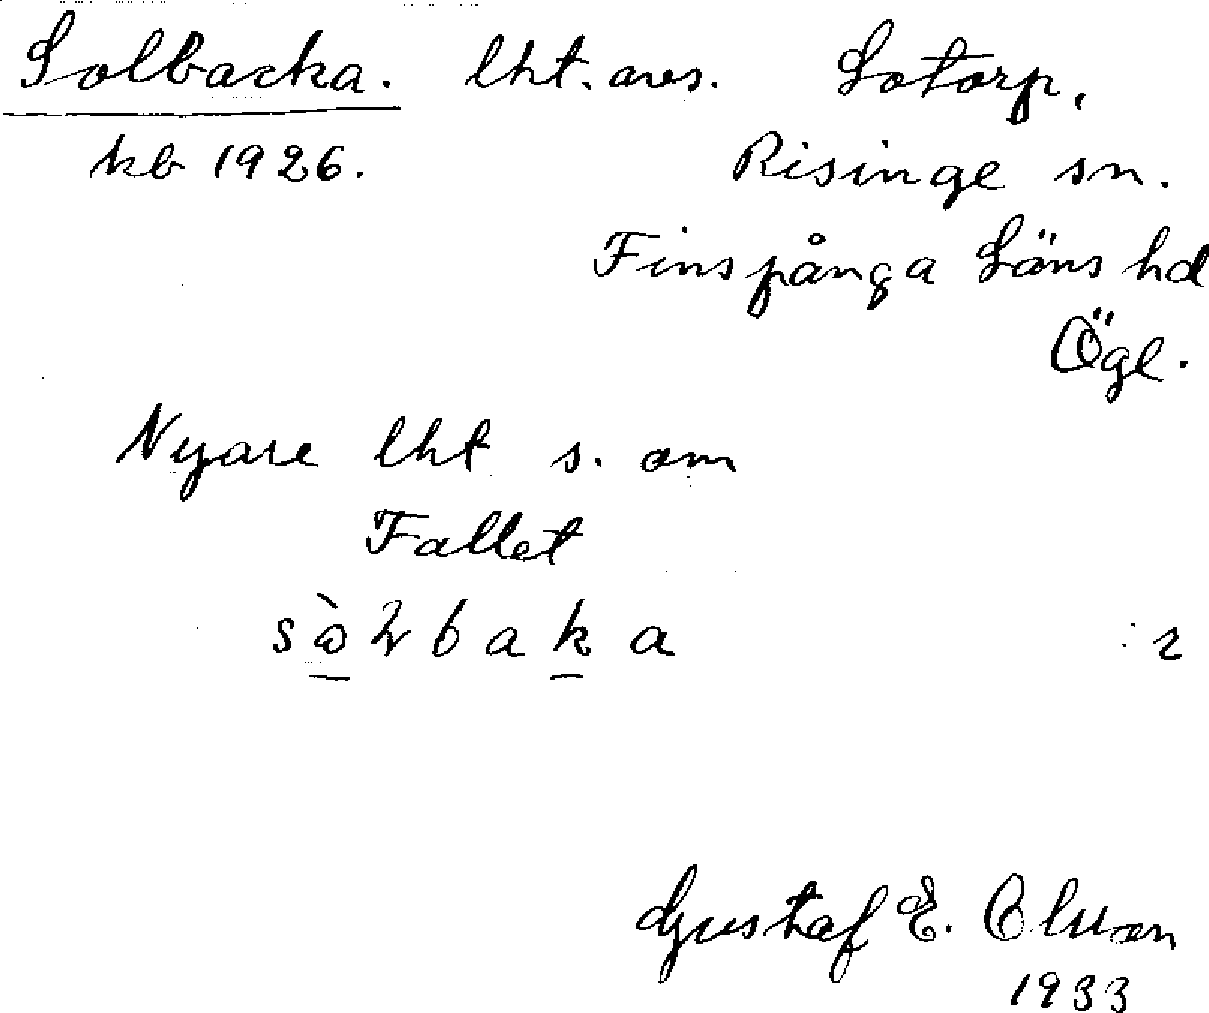 Solbacka. lht. avs. Lotorp,
kb 1926. Risinge sn.
Finspånga Läns hd
Ögl.
Nyare lht s. om
Fallet
: 2
Gustaf E. Olsson
1933